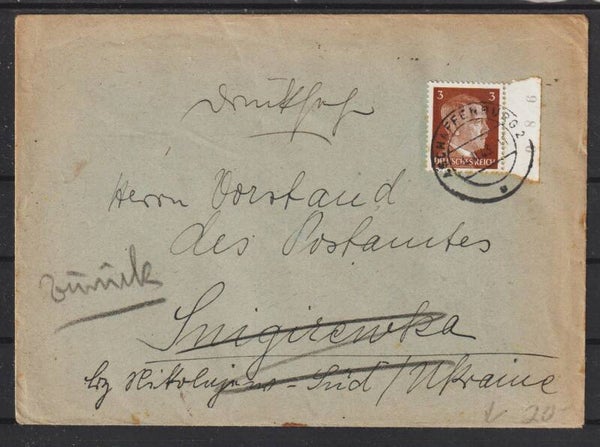 Drucksache
3 3
DEUTSCHES REICH
ASCHAFFENBURG 2
9 8 6
Herrn Vorstand
des Postamtes
zurück
Snigirewka
Bez Nikolajew-Süd/Ukraine
20